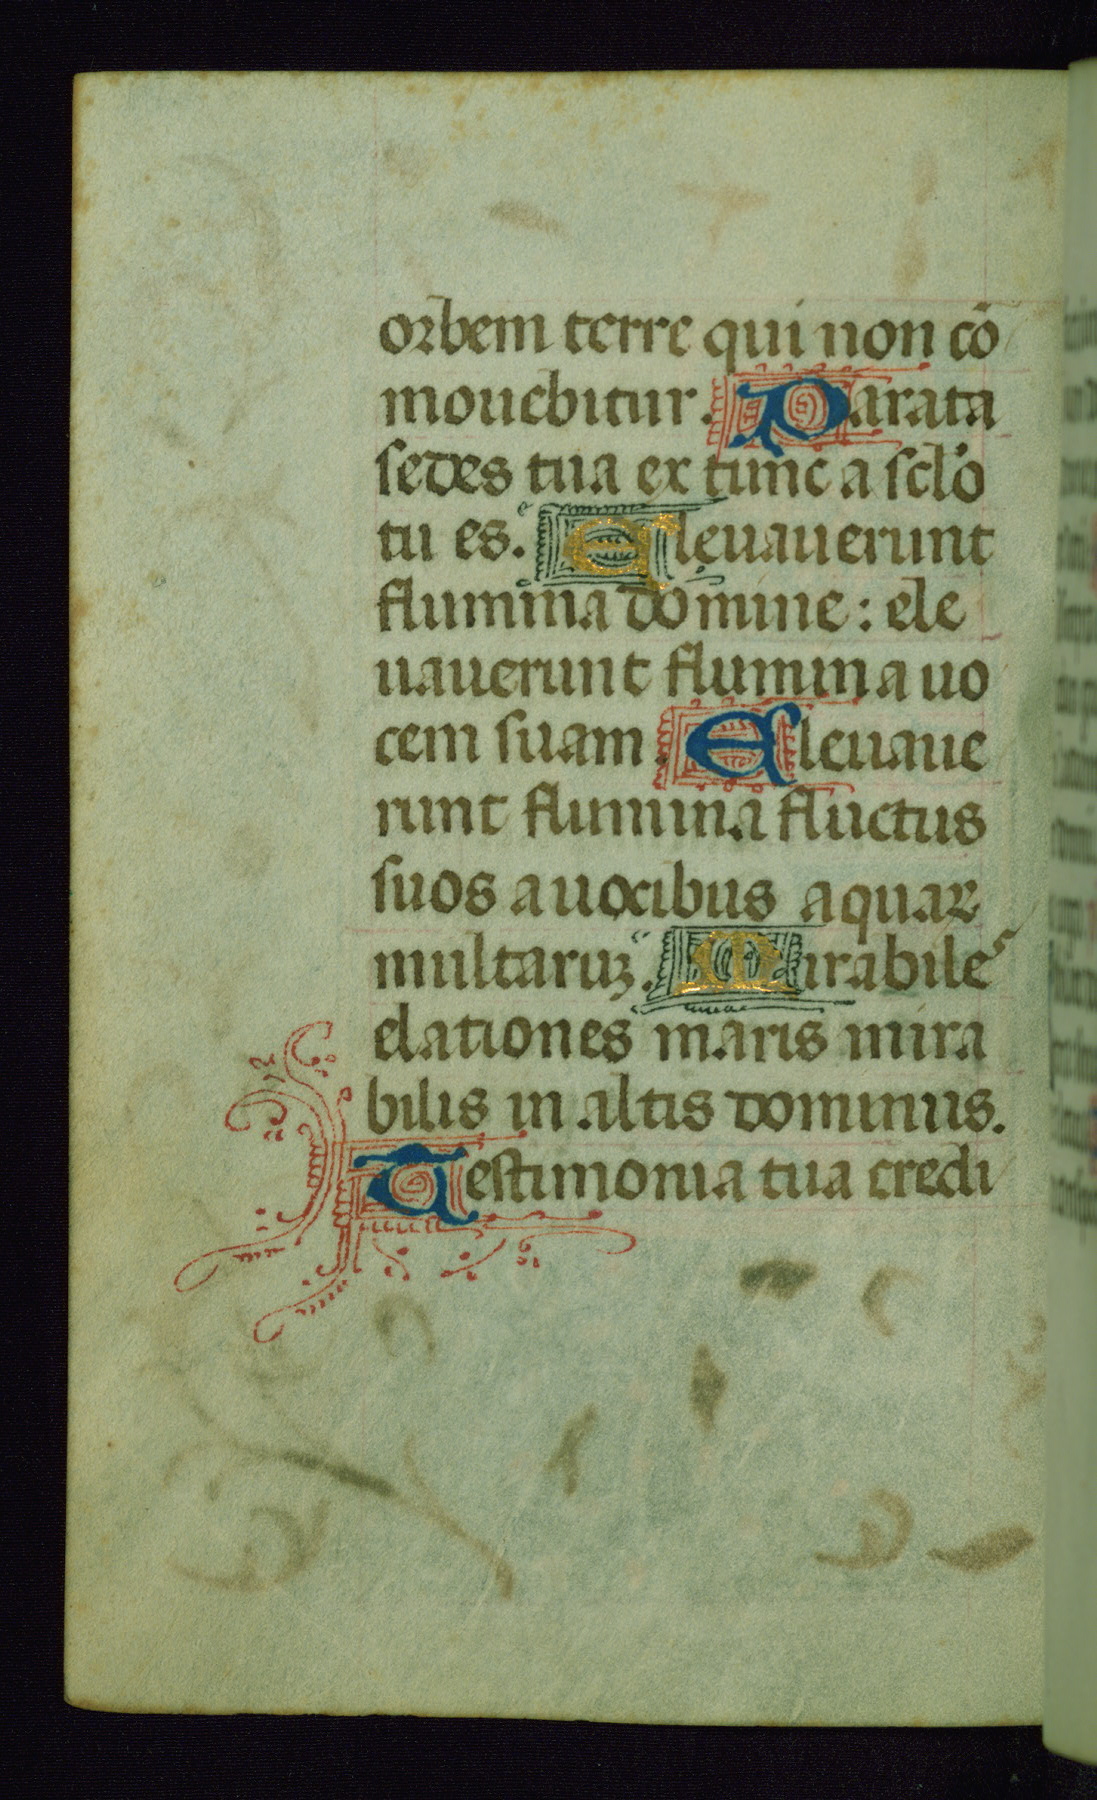 orbem terre qui non cō
mouebitur. Parata
sedes tua ex tunc a sclo
tu es. Eleuauerunt
flumina domine : ele
uauerunt flumina uo
cem suam. Eleuaue
runt flumina fluctus
suos a uocibus aquar
multaruz. Mirabiles
elationes maris mira
bilis in altis dominus.
Testimonia tua credi